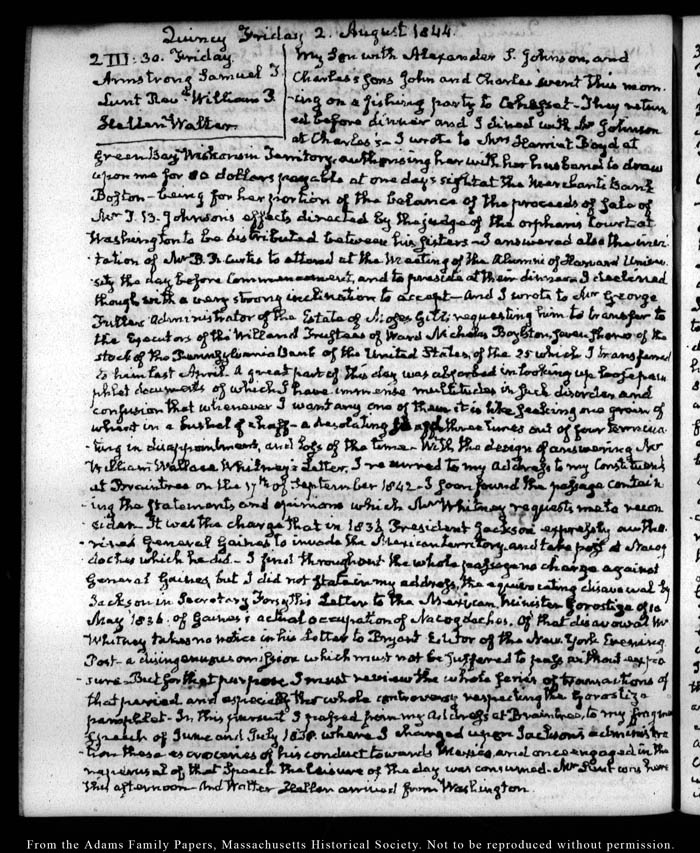 Quincy Friday 2. August 1844.
2 III:30. Friday.
Armstrong Samuel T.
Lunt Revd William P.
Hellen Walter.
My Son with Alexander S. Johnson, and
Charles's Sons John and Charles went this morn-
-ing on a fishing party to Cohasset. They return
ed before dinner and I dined with Mr Johnson
at Charles's. I wrote to Mrs Harriet Boyd at
Green Bay, Wiskonsin Territory, authorising her with her husband to draw
upon me for 80 dollars payable at one days sight at the Merchants Bank
Boston - being for her portion of the balance of the proceeds of sale of
Mr T. B. Johnson's effects directed by the judge of the orphan's Court at
Washington to be distributed between his sisters - I answered also the invi-
tation of Mr B. R. Curtis to attend at the Meeting of the Alumni of Harvard Univer-
sity the day before Commencement, and to preside at their dinner. I declined
though with a very strong inclination to accept - And I wrote to Mr George
Fuller Administrator of the Estate of Moses Gill, requesting him to transfer to
the Executors of the Will and Trustees of Ward Nicholas Boylston, seven shares of the
stock of the Pennsylvania Bank of the United States, of the 25 which I transferred
to him last April. A great part of this day was absorbed in looking up loose pam
phlet documents of which I have immense multitudes in such disorder and
confusion that whenever I want any one of them it is like seeking one grain of
wheat in a bushel of chaff - a desolating three times out of four termina-
-ting in disappointment, and loss of the time - With the design of answering Mr
William Wallace Whitney's Letter, I recurred to my Address to my Constituents
at Braintree on the 17th of September 1842 - I soon found the passage contain
-ing the statements and opinions which Mr Whitney requests me to recon
sider. It was the charge that in 1836 President Jackson expressly autho-
-rized General Gaines to invade the Mexican territory and take post at Nacog
doches which he did - I find throughout the whole passage no charge against
General Gaines, but I did not state in my address, the equivocating disavowal by
Jackson in Secretary Forsyth's Letter to the Mexican Minister Gorostiza of 10
May 1836. of Gaines's actual occupation of Nacogdoches. Of that disavowal Mr
Whitney takes no notice in his Letter to Bryant Editor of the New York Evening
Post - a disingenuous omission which must not be suffered to pass without expo
-sure. But for that purpose I must review the whole series of transactions of
that period and especially the whole controversy respecting the Gorostiza
pamphlet - In this pursuit I passed from my Address at Braintree, to my
Speech of June and July 1838. where I charged upon Jackson's administra
-tion these of his conduct towards Mexico, and once engaged in the
reperusal of that Speech the leisure of the day was consumed. Mr Lunt was here
this afternoon - And Walter Hellen arrived from Washington.
From the Adams Family Papers, Massachusetts Historical Society. Not to be reproduced without permission.